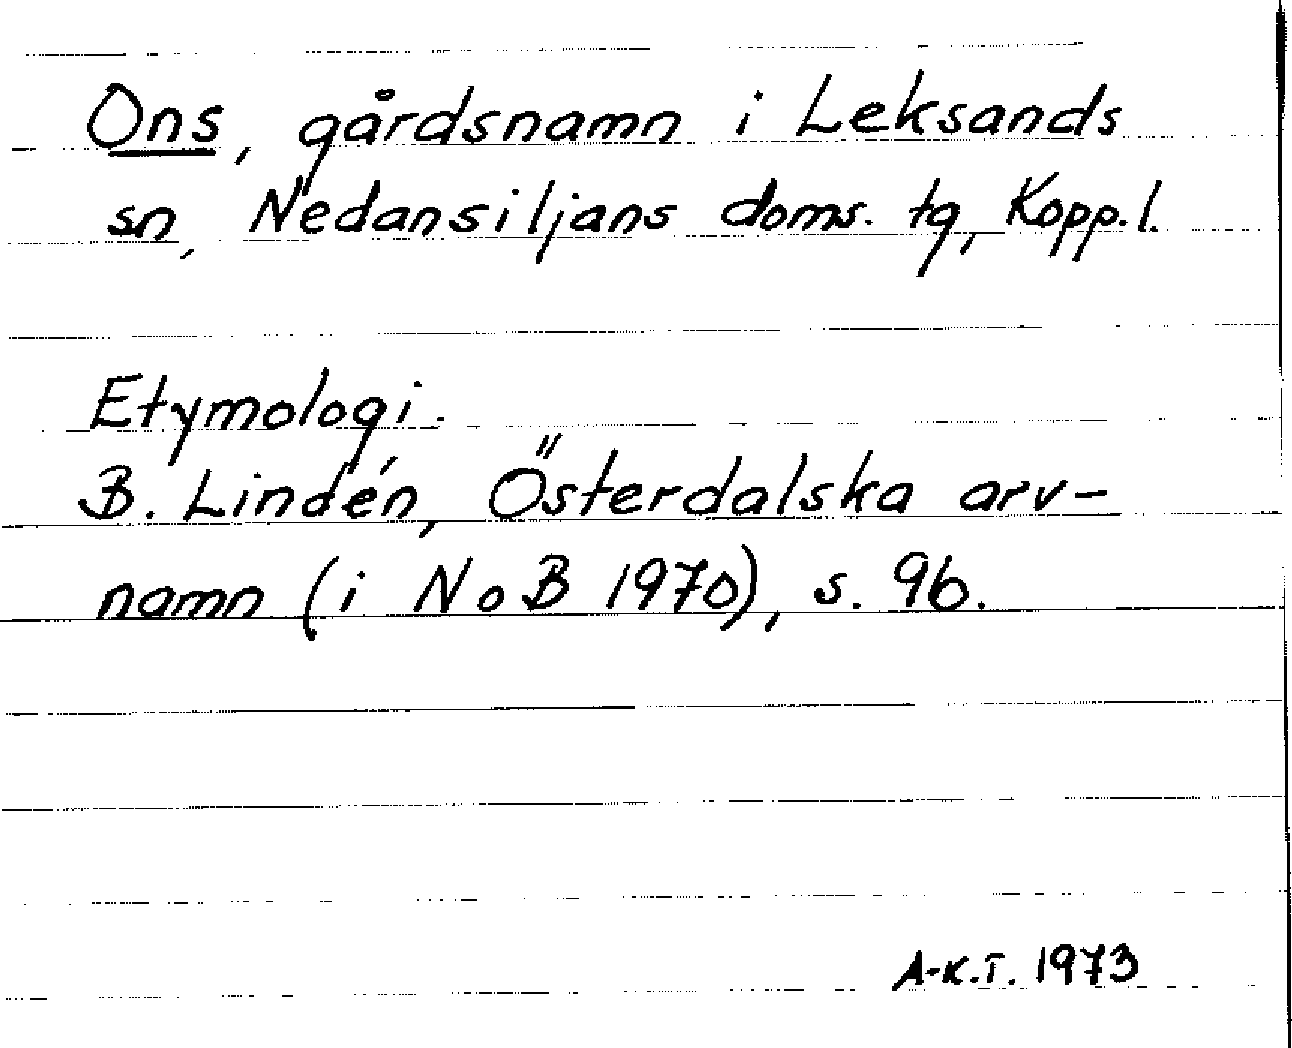 Ons, gårdsnamn i Leksands
sn, Nedansiljans doms. tg, Kopp. l.
Etymologi.
B. Lindén, Österdalska arv-
namn (i NoB 1970), s. 96.
A-K.T. 1973